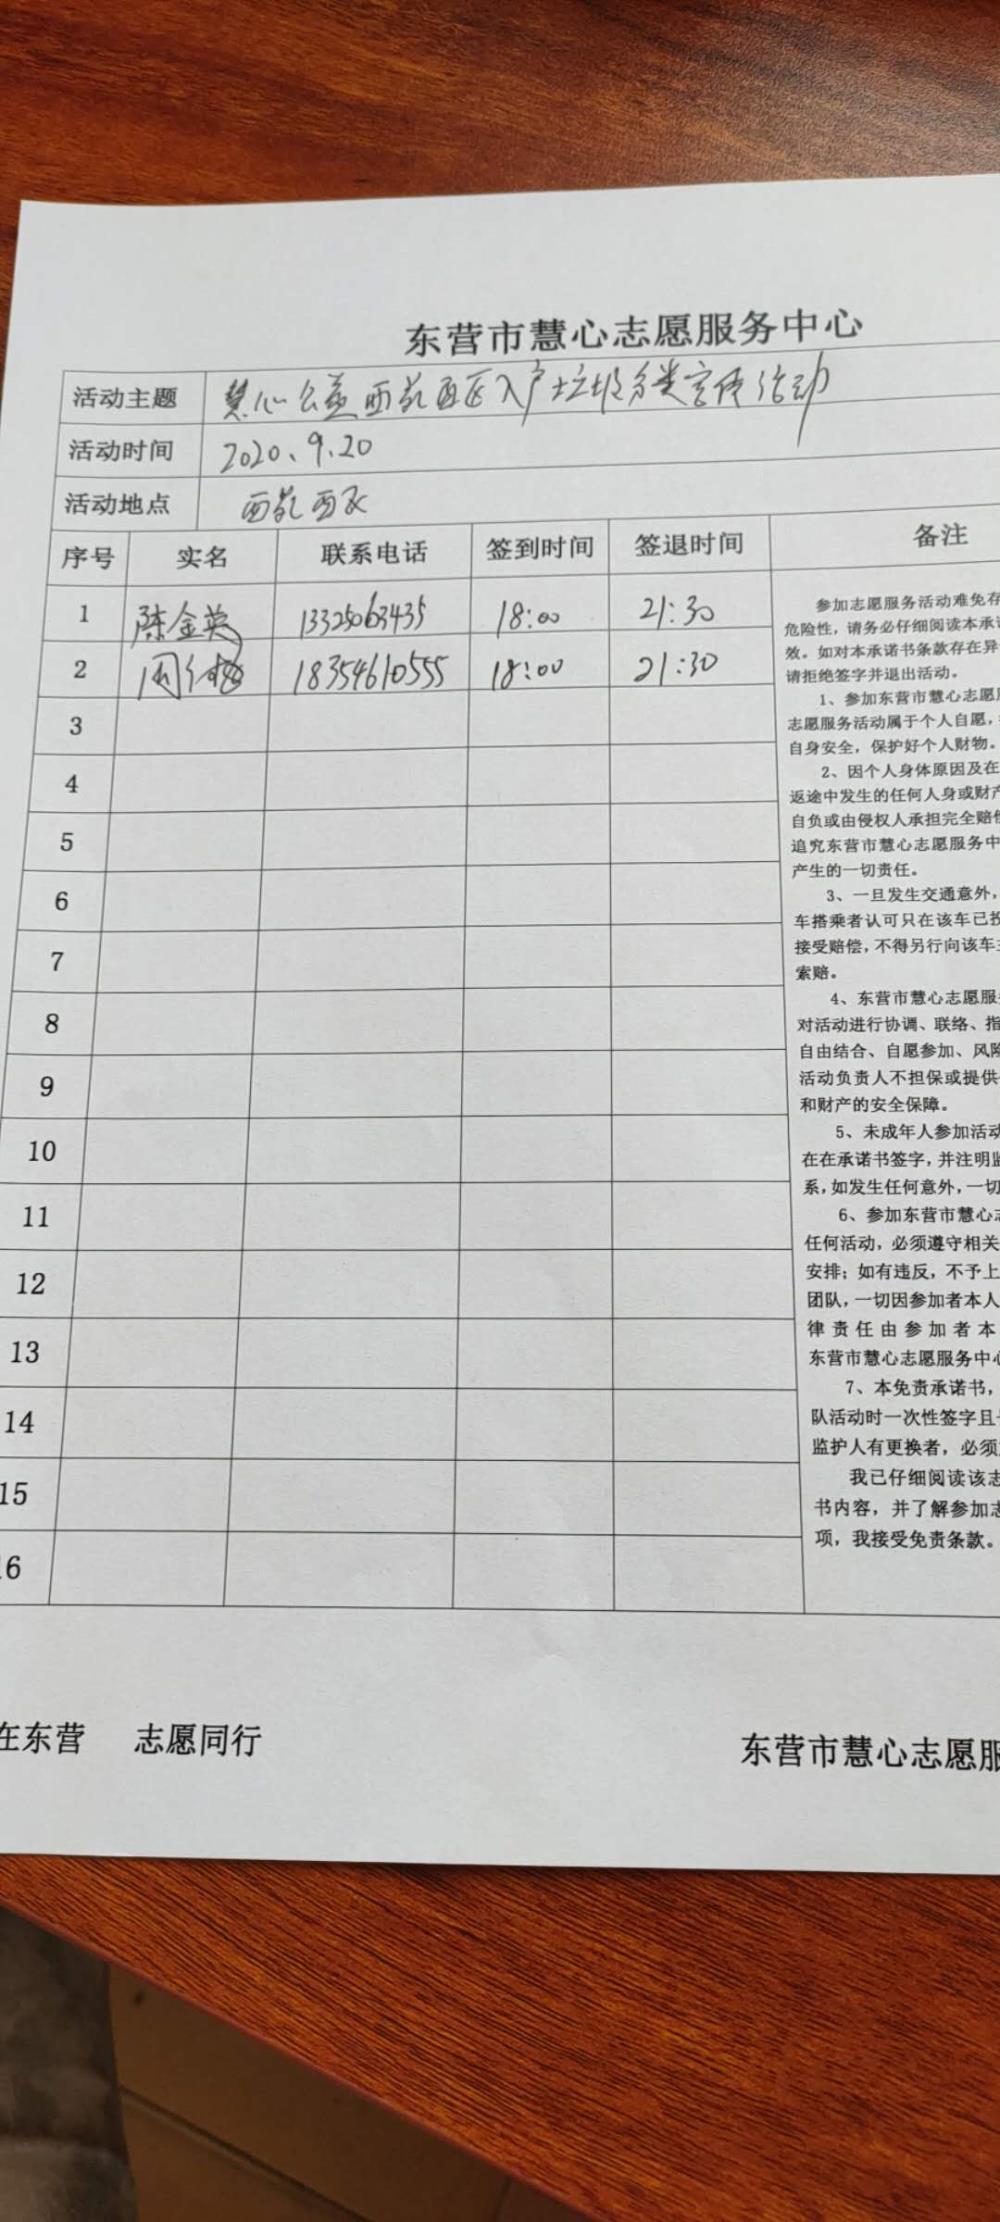 东营市慧心志愿服务中心
活动主题 慧心公益西苑西区入户垃圾分类宣传活动
活动时间 2020、9.20
活动地点 西苑西区
序号 实名 联系电话 签到时间 签退时间 备注
1 陈金英 13325063435 18:00 21:30
2 周 18354610555 18:00 21:30
3
4
5
6
7
8
9
10
11
12
13
14
15
16
参加志愿服务活动难免存
危险性，请务必仔细阅读本承诺
效。如对本承诺书条款存在异
请拒绝签字并退出活动。
1、参加东营市慧心志愿服
志愿服务活动属于个人自愿，
自身安全，保护好个人财物。
2、因个人身体原因及在
返途中发生的任何人身或财产
自负或由侵权人承担完全赔偿
追究东营市慧心志愿服务中
产生的一切责任。
3、一旦发生交通意外，
车搭乘者认可只在该车已投
接受赔偿，不得另行向该车主
索赔。
4、东营市慧心志愿服务
对活动进行协调、联络、指
自由结合、自愿参加、风险
活动负责人不担保或提供
和财产的安全保障。
5、未成年人参加活动
在在承诺书签字，并注明监
系，如发生任何意外，一切
6、参加东营市慧心志
任何活动，必须遵守相关
安排；如有违反，不予上
团队，一切因参加者本人
律责任由参加者本
东营市慧心志愿服务中心
7、本免责承诺书，
队活动时一次性签字且
监护人有更换者，必须
我已仔细阅读该志
书内容，并了解参加志
项，我接受免责条款。
在东营 志愿同行 东营市慧心志愿服